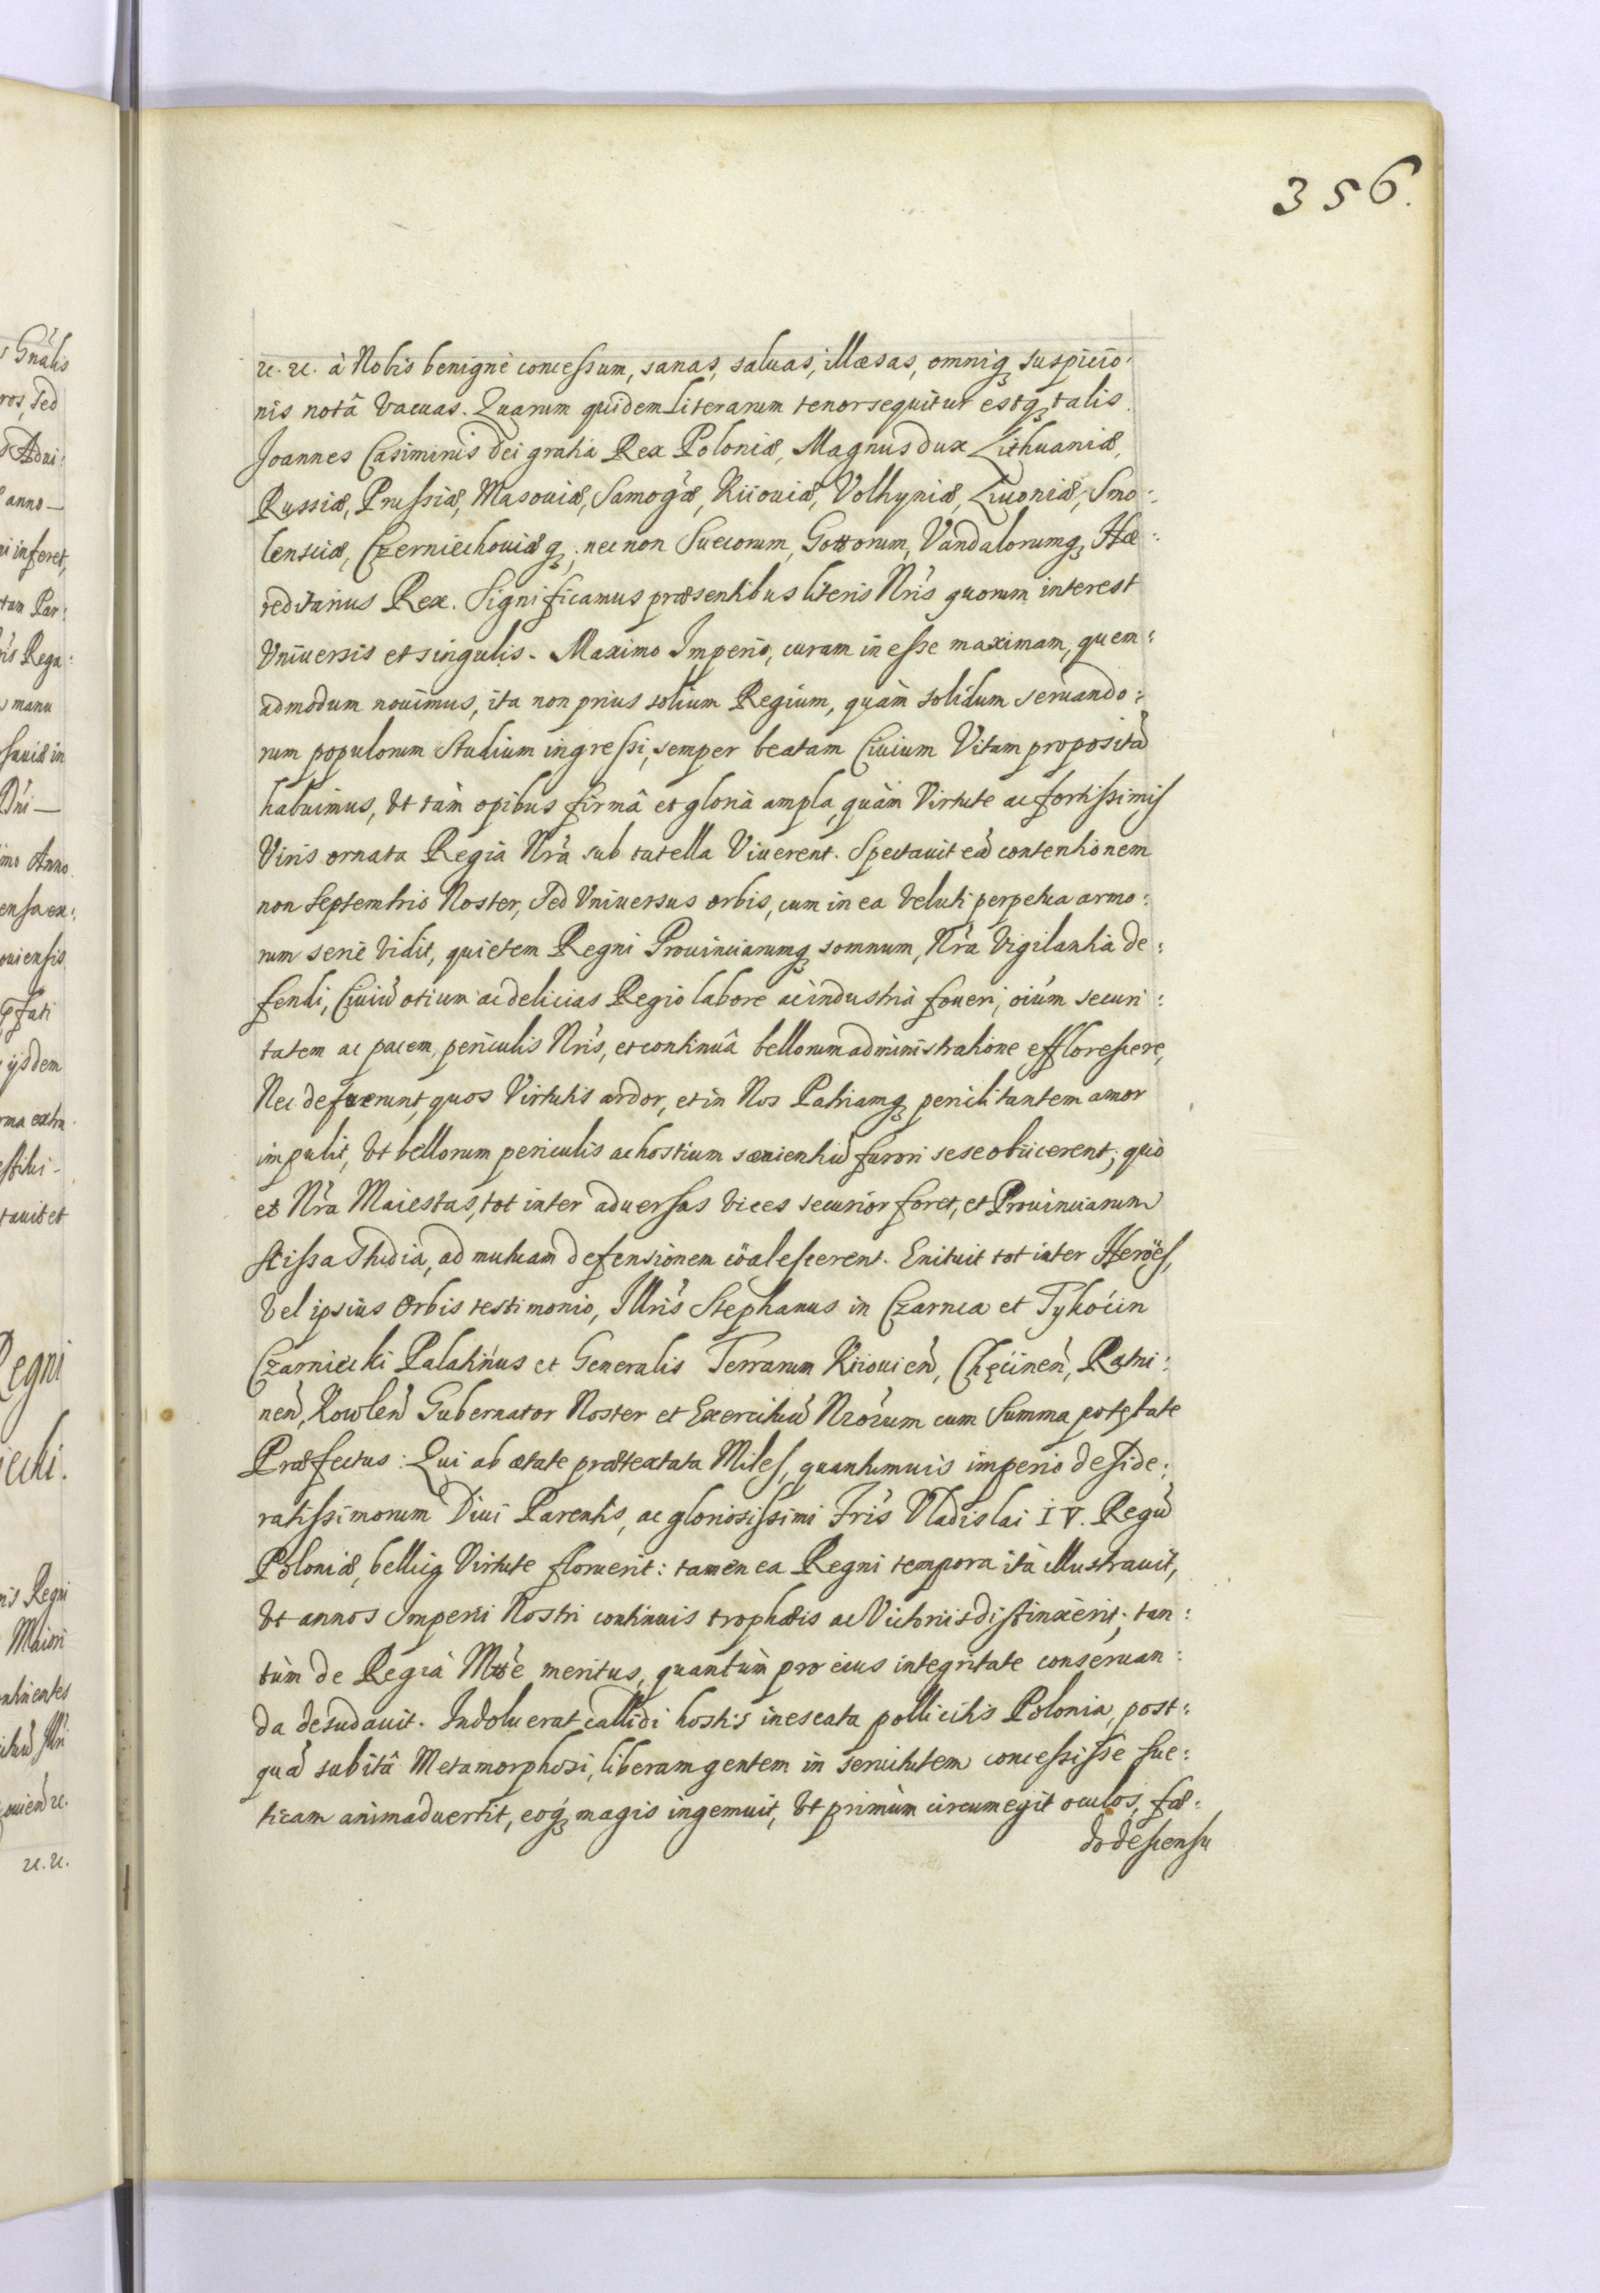 356.
rc. rc. à Nobis benignè concessum, sanas, saluas, illæsas, omniq₃ suspicio:
nis notâ vacuas. Quarum quidem Literarum tenor sequitur estq₃ talis.
Joannes Casimirus Dei gratia Rex Poloniæ, Magnus Dux Lithuaniæ,
Russiæ, Prussiæ, Masouiæ, Samog'æ, Kiiouiæ, Volhyniæ, Liuoniæ, Smo:
lensciæ, Czerniechouiæq₃; nec non Suecorum, Gottorum, Vandalorumq₃ Hæ:
reditarius Rex. Significamus præsentibus literis Nr̃is quorum interest
Vniuersis et singulis. Maximo Imperio, curam inesse maximam, quem:
admodum nouimus, ita non prius solium Regium, quàm solidum seruando:
rum populorum Studium ingressi, semper beatam Ciuium Vitam propositã
habuimus, Vt tàm opibus firmâ et gloriâ ampla, quàm Virtute ac fortissimis
Viris ornata Regia Nr̃a sub tutella Viuerent. Spectauit eã contentionem
non Septemtrio Noster, Sed Vniuersus orbis, cum in ea veluti perpetua armo:
rum serie vidit, quietem Regni Prouinciarumq₃ somnum, Nr̃a Vigilantiâ de:
fendi, Ciuiũ otium ac delicias Regio labore ac industriâ foueri, oiũm securi:
tatem ac pacem, periculis Nr̃is, et continuâ bellorum administratione efflorescere,
Nec defuerunt, quos Virtutis ardor, et in Nos Patriamq₃ periclitantem amor
impulit, Vt bellorum periculis ac hostium sæuientiũ furori sese obiicerent; quò
et Nr̃a Maiestas, tot inter aduersas vices securior foret, et Prouinciarum
scissa Studia, ad mutuam defensionem cöalescerent. Enituit tot inter Heröes,
Vel ipsius Orbis testimonio, Illr̃is Stephanus in Czarnca et Tykocin
Czarniecki Palatinus et Generalis Terrarum Kiiouieñ, Chęcineñ, Ratni:
neñ, Kowleñ Gubernator Noster et Exercituũ Nr̃orum cum Summa potestate
Præfectus: Qui ab ætate prætextata Miles, quantumuis imperio deside:
ratissimorum Diui Parentis, ac gloriosissimi Fr̃is Vladislai IV. Regũ
Poloniæ, belliq₃ Virtute floruerit: tamen ea Regni tempora ità illustrauit,
Vt annos Imperii Nostri continuis trophæis ac Victoriis distinxerit; tan:
tùm de Regia Mtt̃e meritus, quantùm pro eius integritate conseruan:
da desudauit. Indoluerat callidi hostis inescata pollicitis Polonia, post:
quã subitâ Metamorphosi, liberam gentem in seruitutem concessisse Sue:
ticam animaduertit, eoq₃ magis ingemuit, Vt primùm circumegit oculos, fæ:
do descensu